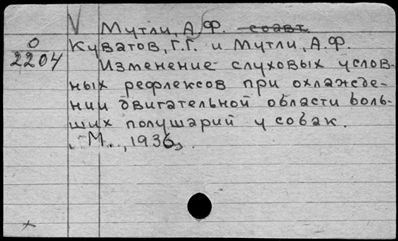 V Мутли, А.Ф. соавт.
О
2204
Куватов, Г.Г. и Мутли, А.Ф.
Изменение слуховых услов-
ных рефлексов при охлажде-
нии двигательной области боль-
ших полушарий у собак.
М., 1936.